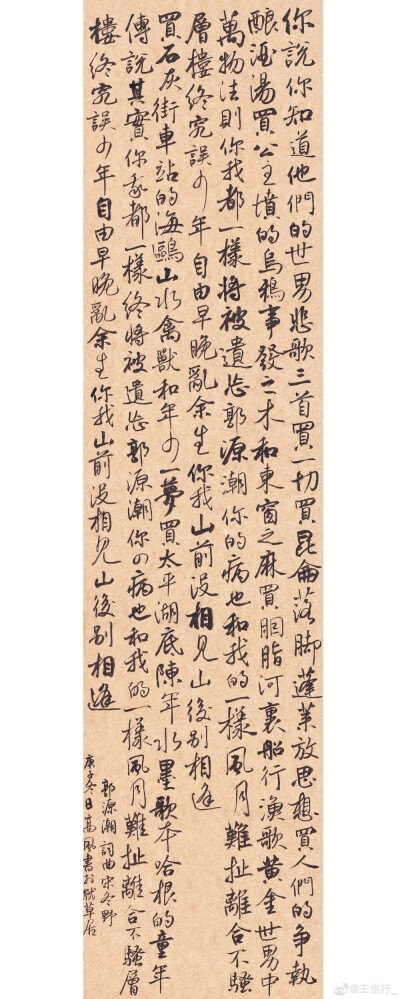 你說你知道他們的世界悲歌三首買一切買昆侖落脚蓬萊放思想買人們的爭執
釀酒湯買公主墳的烏鴉事發之木和東窗之麻買胭脂河裏船行漁歌黃金世界中
萬物法則你我都一樣將被遺忘郭源潮你的病也和我的一樣風月難扯離合不騷
層樓終究誤少年自由早晚亂余生你我山前没相見山後别相逢
買石灰街車站的海鷗山水禽獸和年少一夢買太平湖底陳年水墨歌本哈根的童年
傳說其實你我都一樣終將被遺忘郭源潮你的病也和我的一樣風月難扯離合不騷層
樓終究誤少年自由早晚亂余生你我山前没相見山後别相逢
郭源潮 詞曲宋冬野
庚子冬日高風書於草居
@王也行_